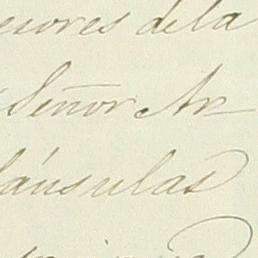 esores de la
Señor Ar-
láusulas